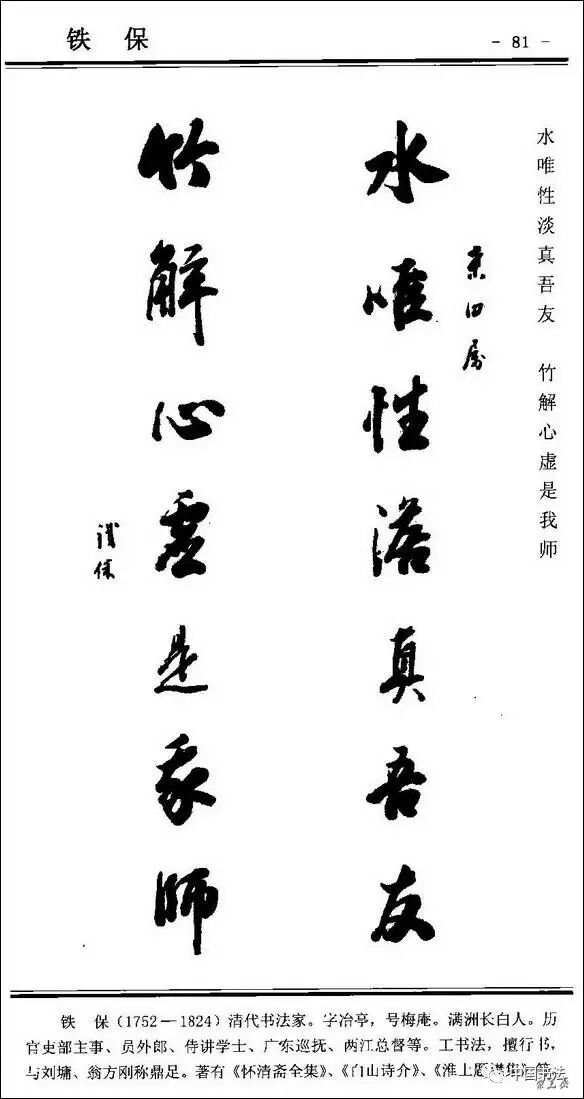 铁保
- 81 -
水唯性淡真吾友 竹解心虚是我师
水唯性淡真吾友
竹解心虚是我师
铁保
铁 保(1752—1824)清代书法家。字冶亭,号梅庵。满洲长白人。历
官吏部主事、员外郎、侍讲学士、广东巡抚、两江总督等。工书法,擅行书,
与刘墉、翁方刚称鼎足。著有《怀清斋全集》、《白山诗介》、《淮上题襟集》等
中国书法